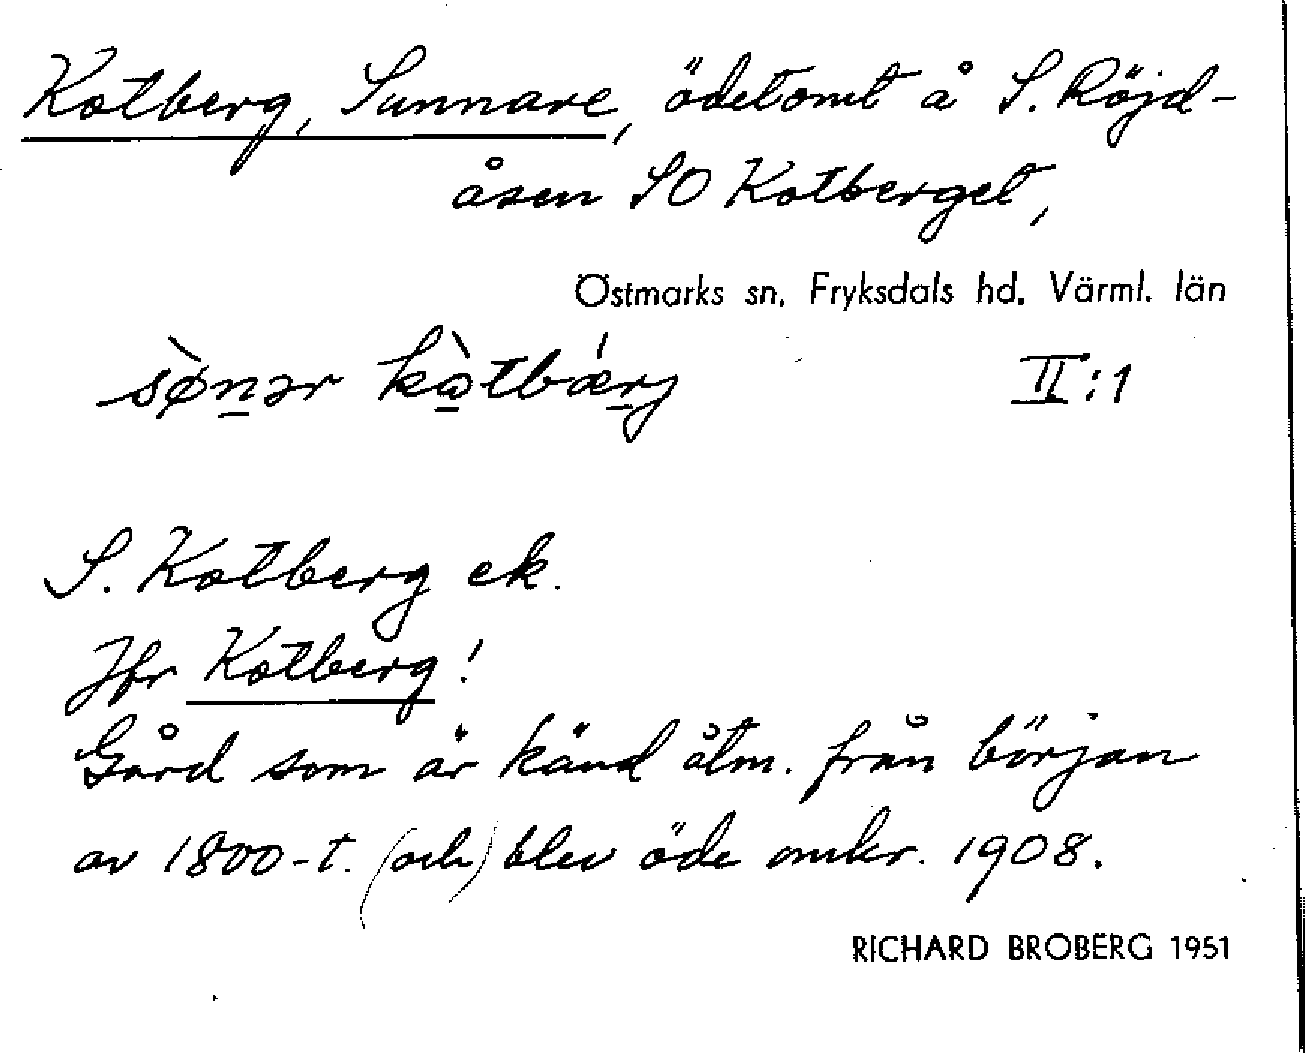 Kotberg, Sunnare, ödetomt å S. Röjd-
åsen SO Kotberget,
Östmarks sn, Fryksdals hd. Värml. län
sø̀nər kòtbǽrj II:1
S. Kotberg ek.
Jfr Kotberg!
Gård som är känd åtm. från början
av 1800-t. (och) blev öde omkr. 1908.
RICHARD BROBERG 1951